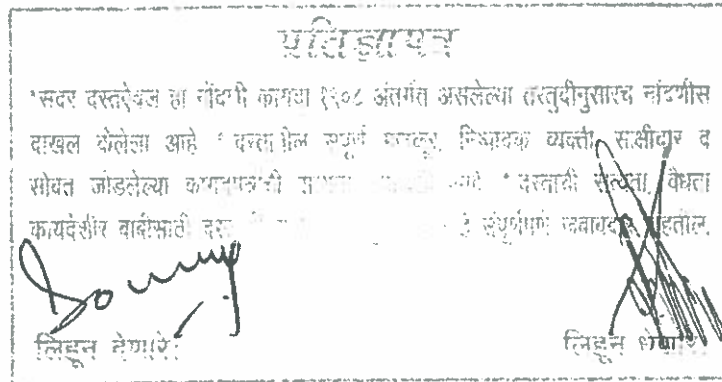 प्रतिज्ञापत्र
"सदर दस्तऐवज हा नोंदणी कायदा १९०८ अंतर्गत असलेल्या तरतुदीनुसारच नोंदणीस
दाखल केलेला आहे संपूर्ण मजकूर, निष्पादक व्यक्ती, साक्षीदार व
सोबत जोडलेल्या कागदपत्रांची दस्ताची सत्यता, वैधता
कायदेशीर बाबींसाठी संपूर्णपणे जबाबदार राहतील.
लिहून देणारे
लिहून घेणारे